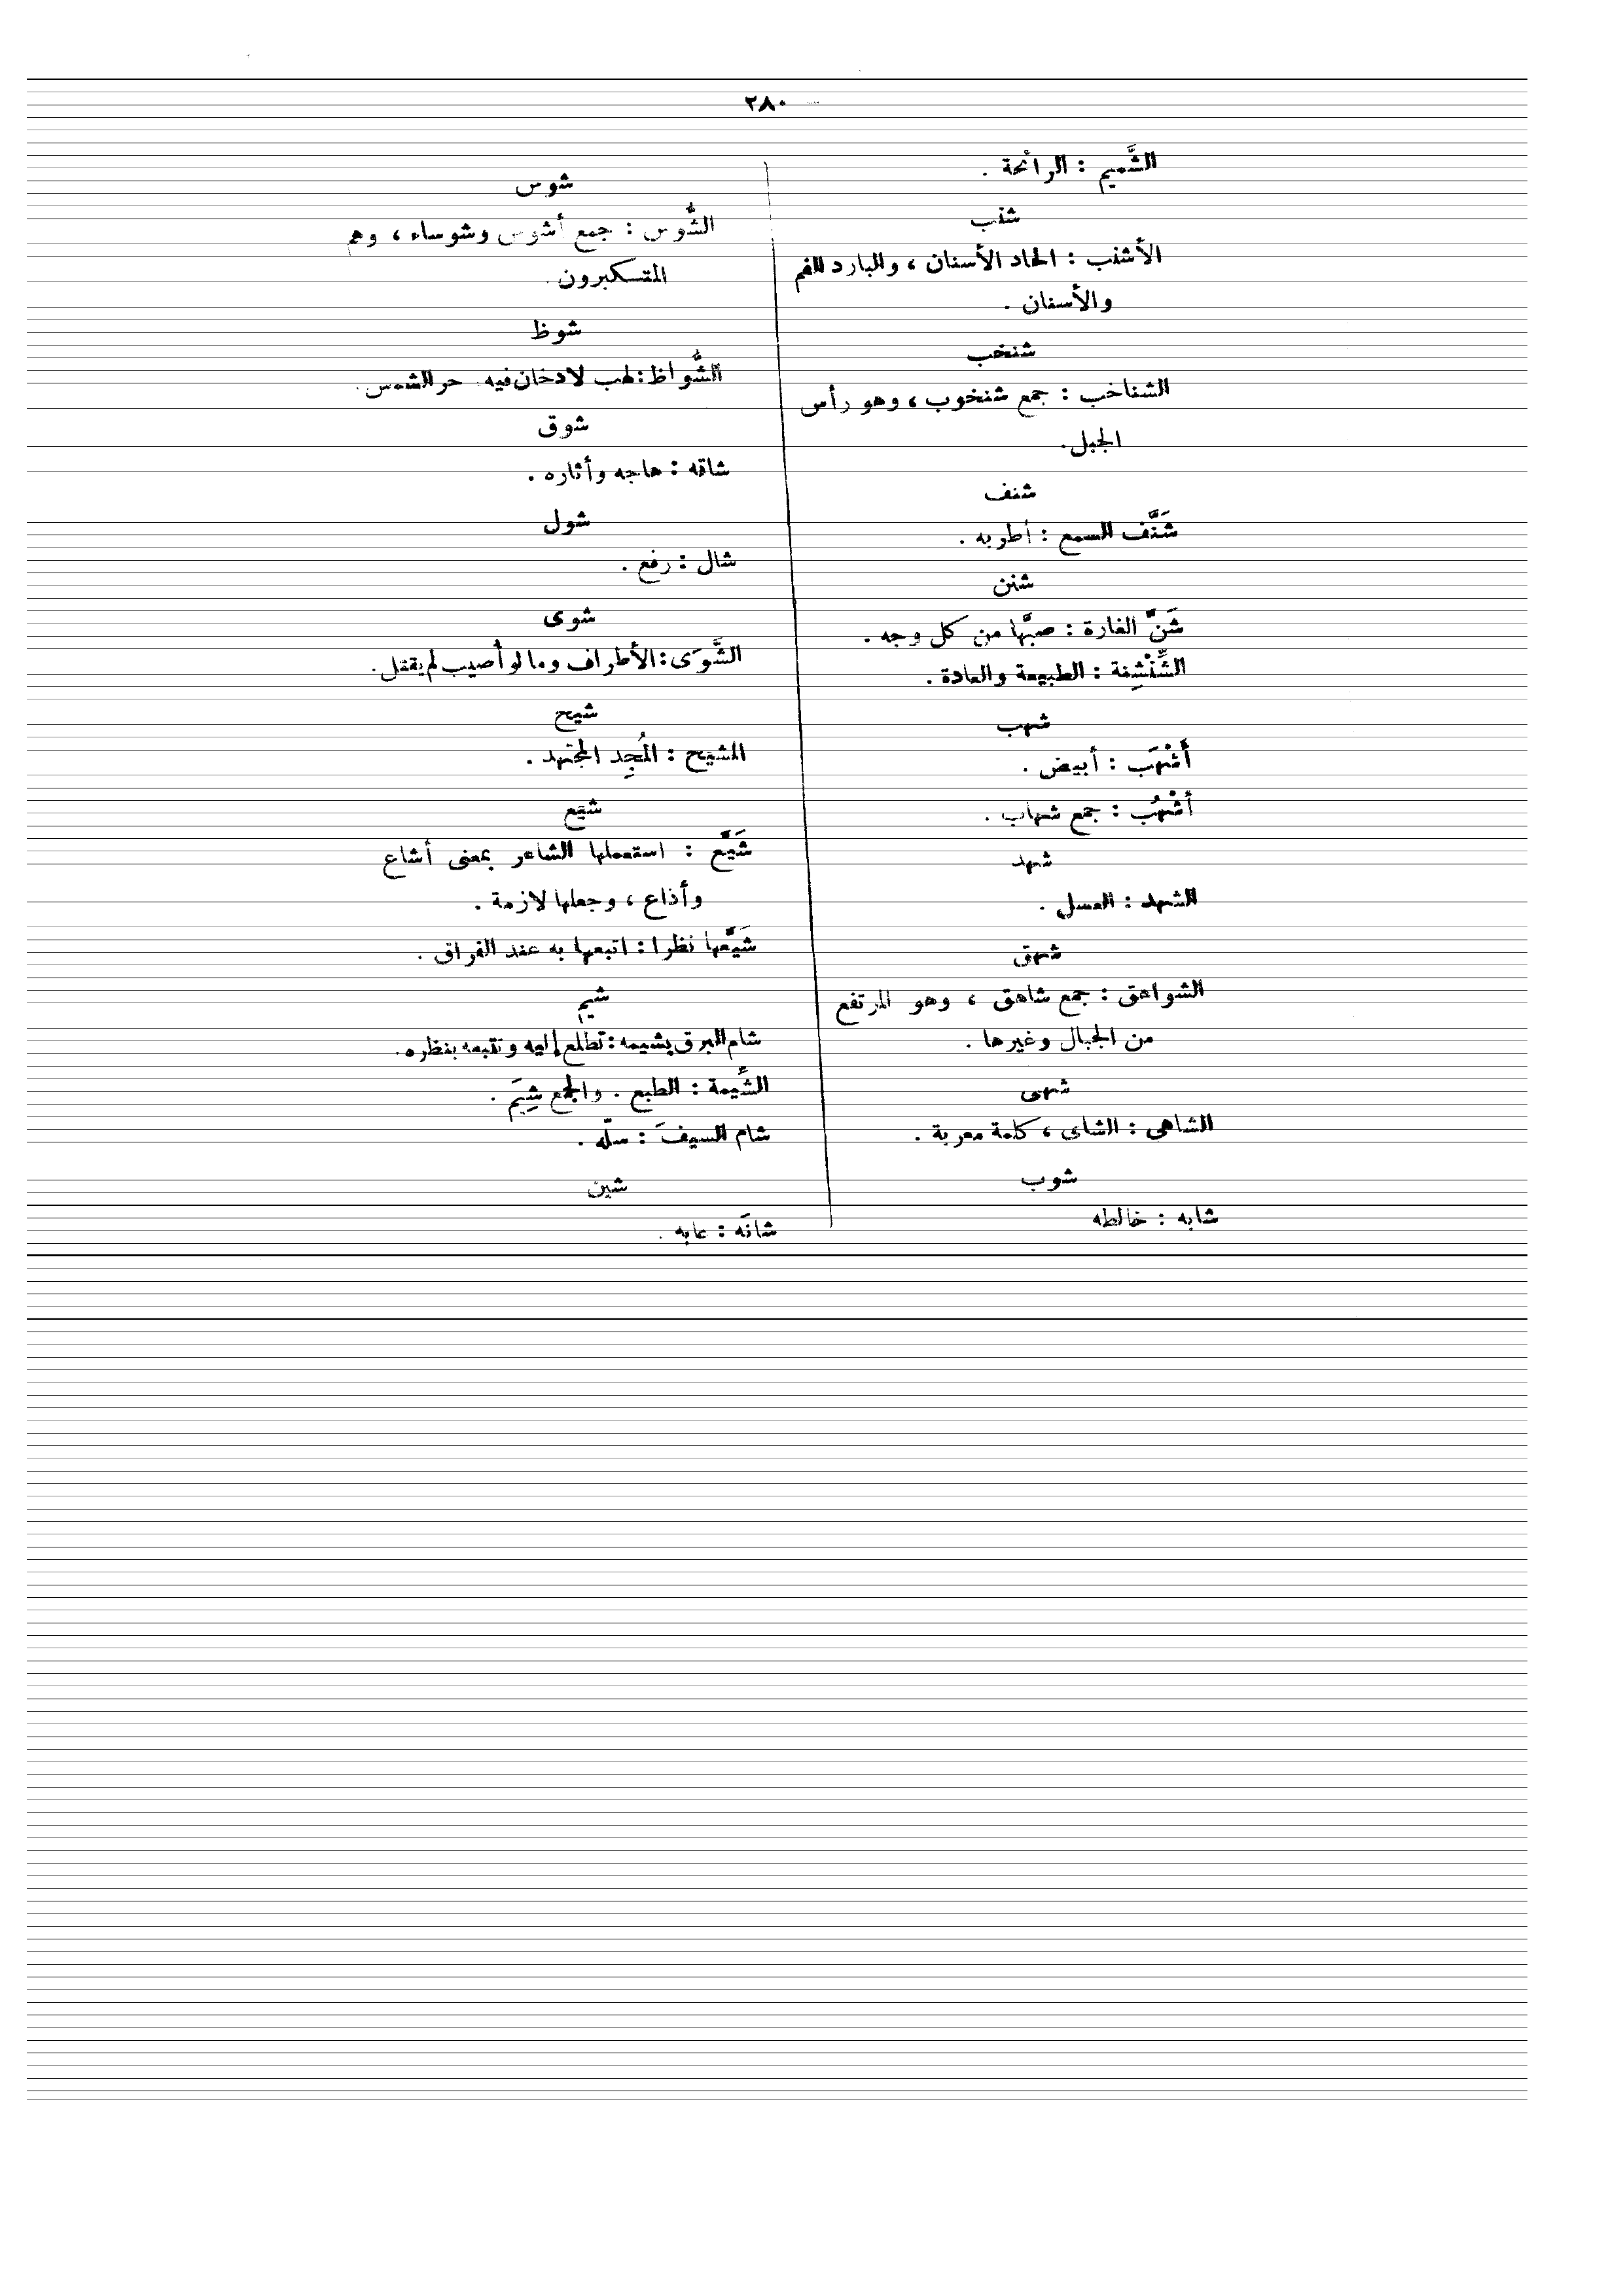 ٢٨٠ —
الشَّميم : الرائحة .
شنب
الأشنب : الحاد الأسنان ، والبارد الفم
والأسنان .
شنخب
الشناخب : جمع شنخوب ، وهو رأس
الجبل .
شنف
شَنَّف السمع : أطربه .
شنن
شَنَّ الغارة : صبَّها من كل وجه .
الشِّنْشِنة : الطبيعة والعادة .
شهب
أَشْهَب : أبيض .
أشْهُب : جمع شهاب .
شهد
الشهد : العسل .
شهق
الشواهق : جمع شاهق ، وهو المرتفع
من الجبال وغيرها .
شهى
الشاهى : الشاى ، كلمة معربة .
شوب
شابه : خالطه
شوس
الشُّوس : جمع أشوس وشوساء ، وهم
المتكبرون .
شوظ
الشُّواظ : لهب لا دخان فيه . حر الشمس .
شوق
شاقه : هاجه وأثاره .
شول
شال : رفع .
شوى
الشَّوَى : الأطراف وما لو أصيب لم يقتل .
شيح
المشيح : المُجِد المجتهد .
شيع
شَيَّع : استعملها الشاعر بمعنى أشاع
وأذاع ، وجعلها لازمة .
شَيَّعها نظرا : اتبعها به عند الفراق .
شيم
شام البرق يشيمه : تطلع إليه وتتبعه بنظره .
الشِّيمة : الطبع . والجمع شِيَم .
شام السيفَ : سلّه .
شين
شانَه : عابه .